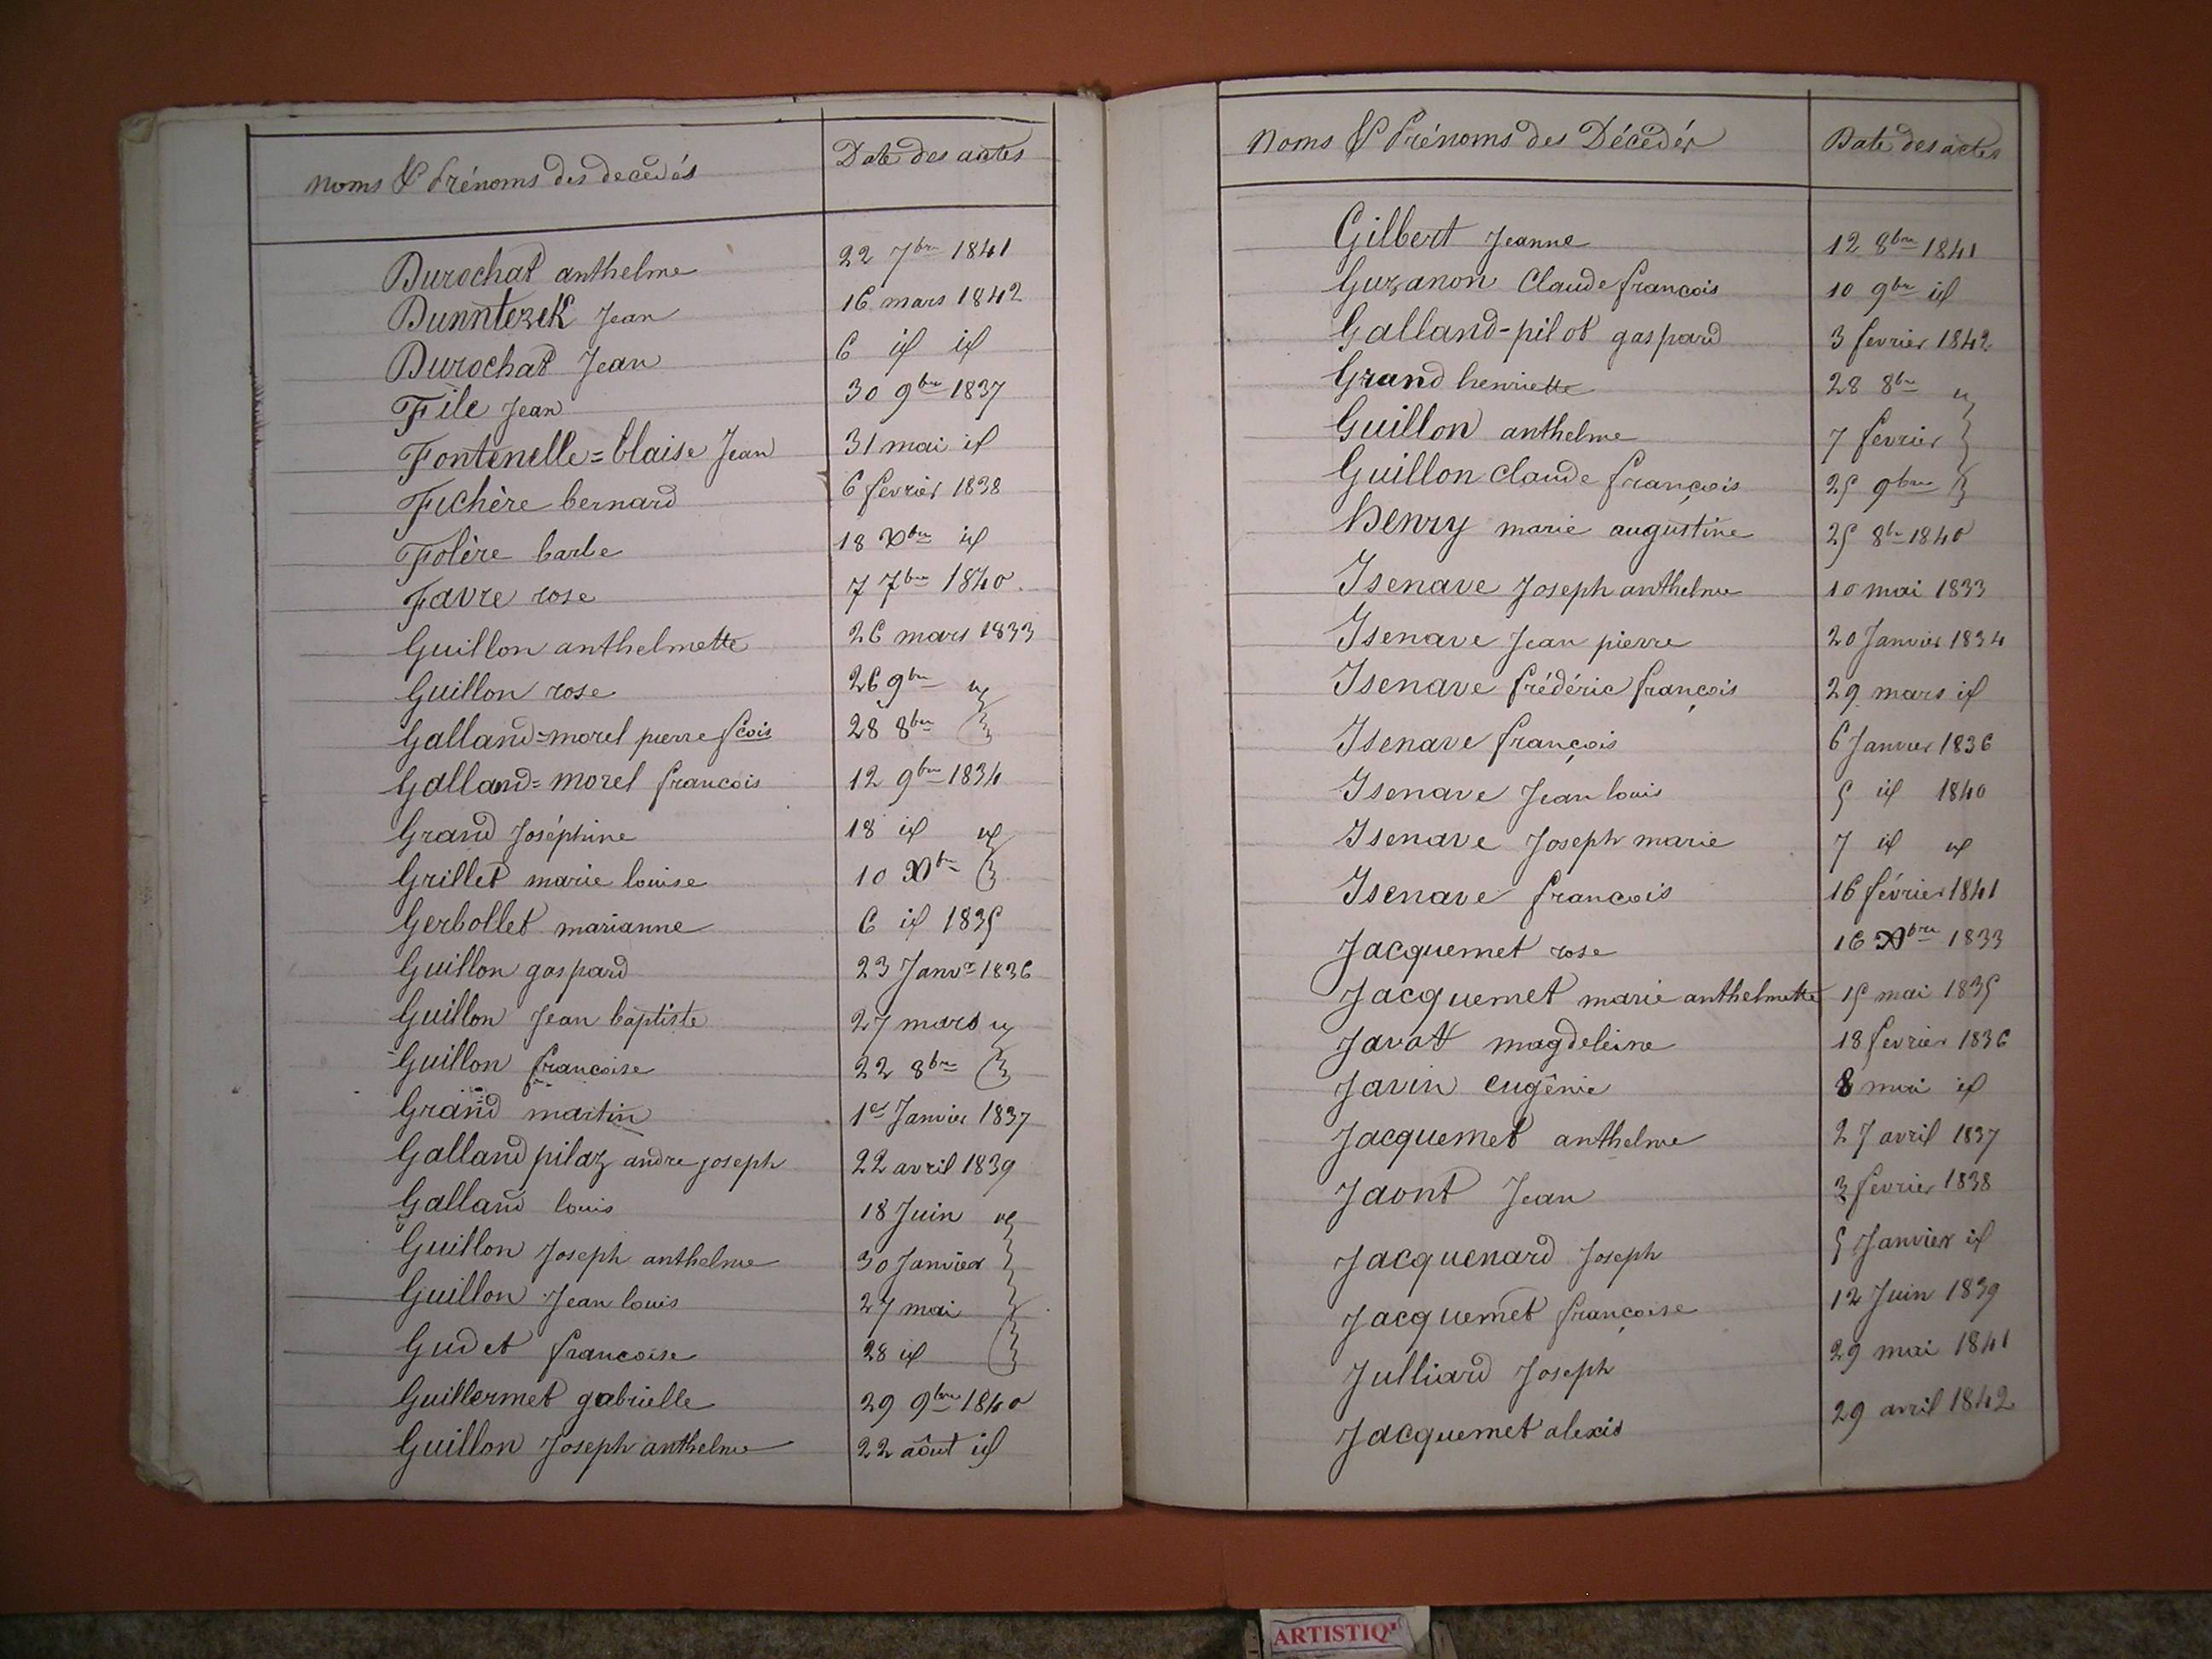 Noms & Prénoms des decedés Date des actes
Durochat anthelme 22 7bre 1841
Dunntezek Jean 16 mars 1842
Durochat Jean 6 id id
File Jean 30 9bre 1837
Fontenelle=blaise Jean 31 mai id
Fichère bernard 6 fevrier 1838
Folère barbe 18 Xbre id
Favre rose 7 7bre 1840
Guillon anthelmette 26 mars 1833
Guillon rose 26 9bre id
Galland=morel pierre fcois 28 8bre
Galland=morel francois 12 9bre 1834
Grand Joséphine 18 id id
Grillet marie louise 10 Xbre
Gerbollet marianne 6 id 1835
Guillon gaspard 23 Janvr 1836
Guillon Jean baptiste 27 mars id
Guillon francoise 22 8bre
Grand martin 1er Janvier 1837
Galland pilaz andre joseph 22 avril 1839
Galland louis 18 Juin id
Guillon Joseph anthelme 30 Janvier
Guillon Jean louis 27 mai
Gudet francoise 28 id
Guillermet gabrielle 29 9bre 1840
Guillon Joseph anthelme 22 aôut id
Noms & Prénoms des Décédés Date des actes
Gilbert Jeanne 12 8bre 1841
Guzanon Claude francois 10 9bre id
Galland-pilot gaspard 3 fevrier 1842
Grand henriette 28 8bre id
Guillon anthelme 7 fevrier
Guillon claude françois 25 9bre
henry marie augustine 25 8bre 1840
Isenave Joseph anthelme 10 mai 1833
Isenave Jean pierre 20 Janvier 1834
Isenave frédéric françois 29 mars id
Isenave françois 6 Janvier 1836
Isenave Jean louis 5 id 1840
Isenave Joseph marie 7 id id
Isenave francois 16 février 1841
Jacquemet rose 16 Xbre 1833
Jacquemet marie anthelmette 15 mai 1835
Javott magdeleine 18 fevrier 1836
Javin eugênie 8 mai id
Jacquemet anthelme 27 avril 1837
Jaont Jean 3 fevrier 1838
Jacquenard Joseph 5 Janvier id
Jacquemet françoise 12 Juin 1839
Julliard Joseph 29 mai 1841
Jacquemet alexis 29 avril 1842
ARTISTIQ